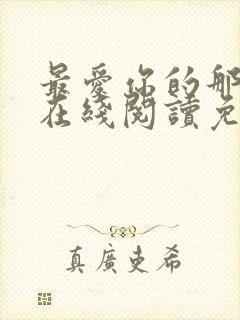 最愛你的那
在綫閱讀免
真廣吏希